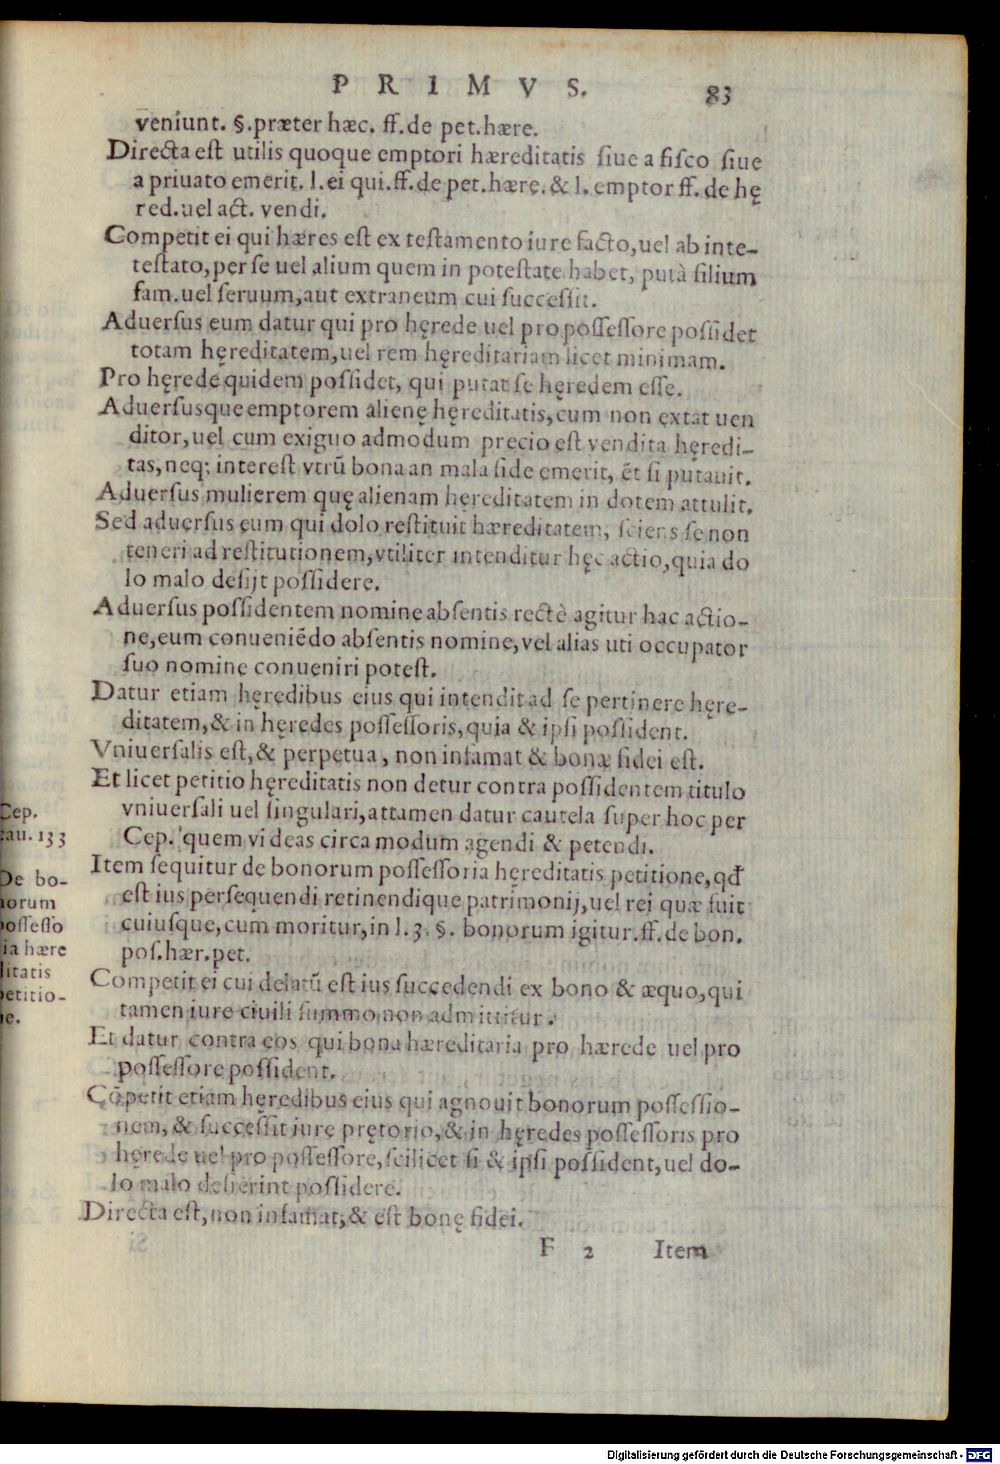 PRIMVS. 83
veniunt. §.præter hæc. ff.de pet.hære.
Directa est utilis quoque emptori hæreditatis siue a fisco siue
a priuato emerit. l.ei qui.ff.de pet.hære.& l. emptor ff.de hę
red.uel act. vendi.
Competit ei qui hæres est ex testamento iure facto,uel ab inte-
testato,per se uel alium quem in potestate habet, putà filium
fam.uel seruum,aut extraneum cui successit.
Aduersus eum datur qui pro hęrede uel pro possessore possidet
totam hęreditatem,uel rem hęreditariam licet minimam.
Pro hęrede quidem possidet, qui putat se hęredem esse.
Aduersusque emptorem alienę hęreditatis,cum non extat uen
ditor,uel cum exiguo admodum precio est vendita hęredi-
tas,neq; interest vtrũ bona an mala fide emerit, ẽt si putauit.
Aduersus mulierem quę alienam hęreditatem in dotem attulit.
Sed aduersus eum qui dolo restituit hæreditatem, sciens se non
teneri ad restitutionem,vtiliter intenditur hęc actio,quia do
lo malo desijt possidere.
Aduersus possidentem nomine absentis rectè agitur hac actio-
ne,eum conueniẽdo absentis nomine,vel alias uti occupator
suo nomine conueniri potest.
Datur etiam hęredibus eius qui intendit ad se pertinere hęre-
ditatem,& in hęredes possessoris,quia & ipsi possident.
Vniuersalis est,& perpetua, non infamat & bonæ fidei est.
Et licet petitio hęreditatis non detur contra possidentem titulo
vniuersali uel singulari,attamen datur cautela super hoc per
Cep. quem videas circa modum agendi & petendi.
Cep.
cau. 133
Item sequitur de bonorum possessoria hęreditatis petitione,qđ
est ius persequendi retinendique patrimonij,uel rei quæ fuit
cuiusque,cum moritur,in l.3. §. bonorum igitur.ff.de bon.
pos.hær.pet.
De bo-
norum
possesso
ria hære
ditatis
petitio-
ne.
Competit ei cui delatũ est ius succedendi ex bono & æquo,qui
tamen iure ciuili summo non admittitur.
Et datur contra eos qui bona hæreditaria pro hærede uel pro
possessore possident.
Cõpetit etiam hęredibus eius qui agnouit bonorum possessio-
nem,& successit iure pretorio,& in hęredes possessoris pro
hęrede uel pro possessore,scilicet si & ipsi possident,uel do-
lo malo desierint possidere.
Directa est,non infamat,& est bonę fidei.
F 2 Item
Digitalisierung gefördert durch die Deutsche Forschungsgemeinschaft - DFG